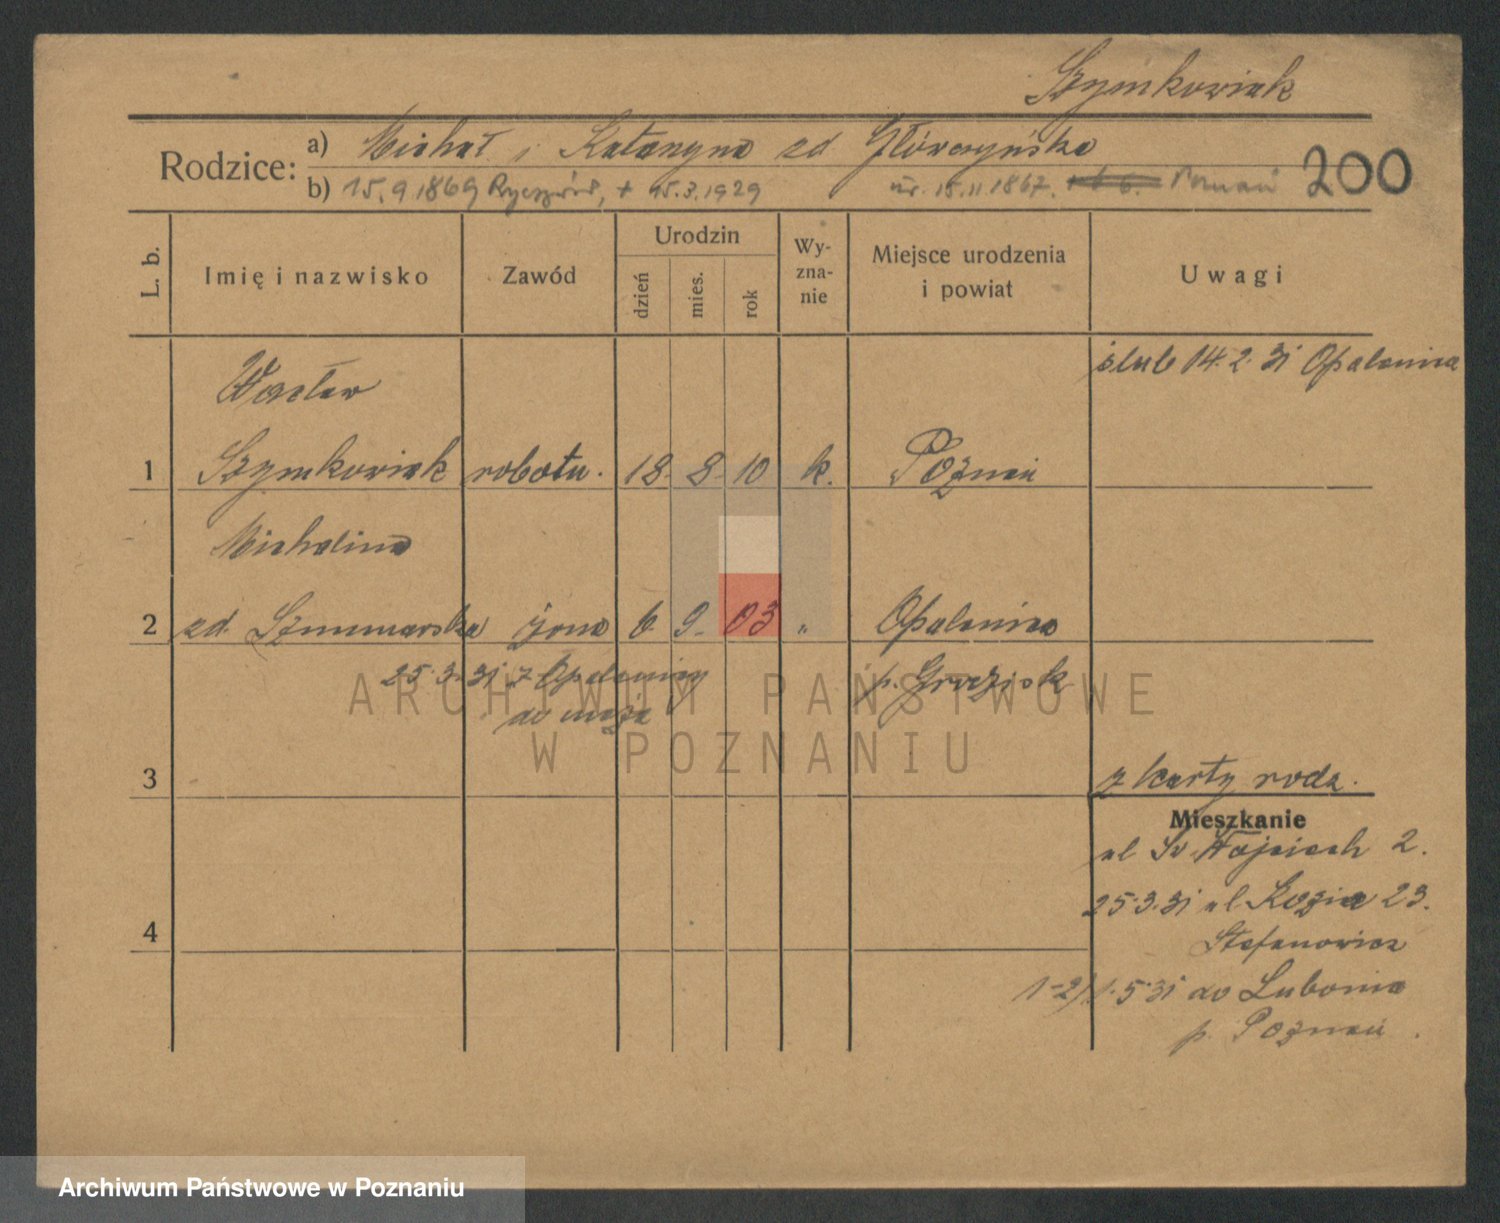 Szymkowiak
Rodzice: a) Michał i Katarzyna zd Główczyńska
b) 15.9.1869 Ryczywół, + 15.3.1929 ur. 15.11.1867. Poznań 200
L. b. Imię i nazwisko Zawód Urodzin dzień mies. rok Wy-zna-nie Miejsce urodzenia i powiat Uwagi
ślub 14.2.31 Opalenica
Wacław
1 Szymkowiak robotn. 18. 8. 10 k. Poznań
Michalina
2 zd. żona 6 9. 03 " Opalenica
25.3.31 z Opalenicy p. Grodzisk
do męża
ARCHIWUM PAŃSTWOWE
W POZNANIU
3 z karty rodz.
Mieszkanie
ul Św Wojciech 2.
25.3.31 ul Kozia 23.
4
Stefanowicz
1-2) 1.5.31 do Lubonia
p. Poznań.
Archiwum Państwowe w Poznaniu